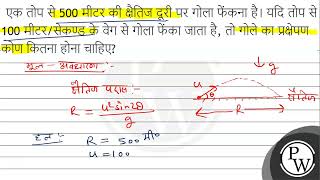 एक तोप से 500 मीटर की क्षैतिज दूरी पर गोला फेंकना है। यदि तोप से
100 मीटर/सेकण्ड के वेग से गोला फेंका जाता है, तो गोले का प्रक्षेपण
कोण कितना होना चाहिए?
मूल - अवधारणा :-
↓ g
क्षैतिज परास :-
R = u² sin2θ / g
u
θ
क्षैतिज
R
हल :-
R = 500 मी०
u = 100
PW